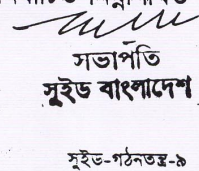 সভাপতি
সুইড বাংলাদেশ
সুইড-গঠনতন্ত্র-৯